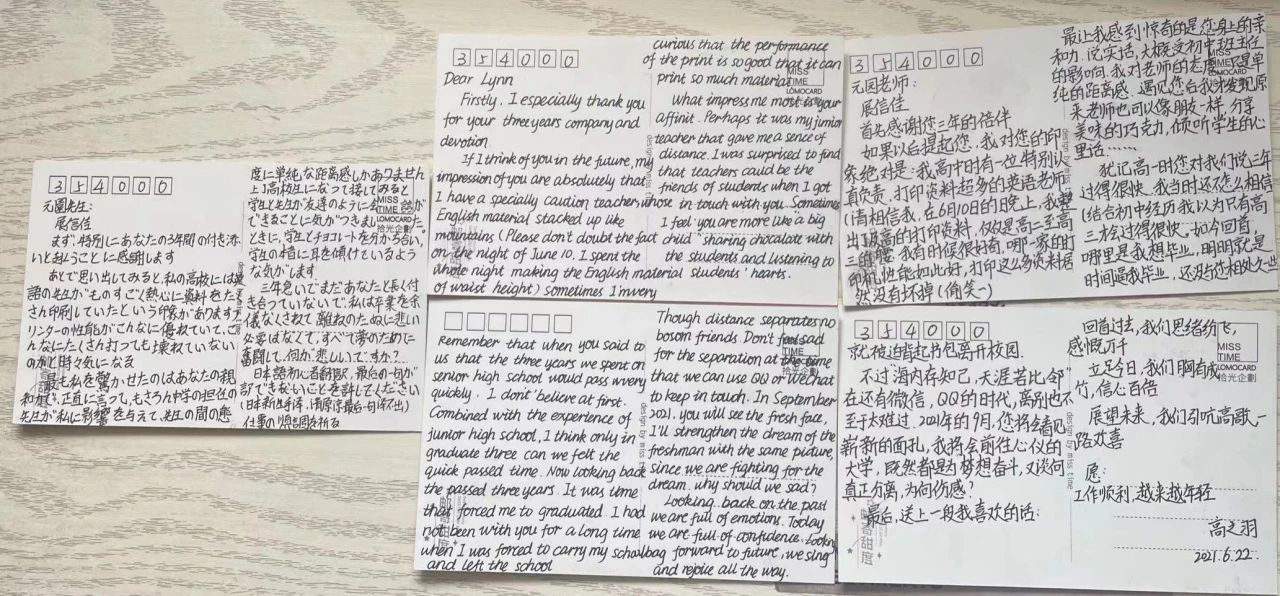 3 5 4 0 0 0
元園先生:
展信佳
まず、特別にあなたの3年間の付き添
いと払うことに感謝します
あとで思い出してみると、私の高校には英
語の先生が"ものすごく熱心に資料をたく
さん印刷していたという印象があります
リンターの性能がこんなに優れていて、こ
んなにたくさん打っても壊れていない
のか、時々気になる
最も私を驚かせたのはあなたの親
和感、正直に言って、もちろん中学の担任の
先生が私に影響を与えて、先生の間の態
度に単純な距離感しかありません
高校生になって接してみると
学生と先生が友達のように
ができることに気がつきました
ときに、学生とチョコレートを分かち合い、
学生の指に耳を傾けているよう
な気がします
三年急いでまだあなたと長く付
き合っていないで、私は卒業を余
儀なくされて、離ねのために悲しい
必要はなくて、すべて夢のために
奮闘して、何が悲しいですか?
日本語初心者翻訳、最后の一句が
訳できないことを許してください
(日本新生手译,请原谅最后一句译不出)
仕事の順調を祈る
MISS
TIME
LOMOCARD
拾光企劃
3 5 4 0 0 0
Dear Lynn
Firstly, I especially thank you
for your three years company and
devotion
If I think of you in the future, my
impression of you are absolutely that
I have a specially caution teacher whose
English material stacked up like
mountains (Please don't doubt the fact
on the night of June 10, I spent the
whole night making the English material
of waist height) sometimes I'm very
curious that the performance
of the print is so good that it can
print so much material
What impress me most is your
affinit. Perhaps it was my junior
teacher that gave me a sence of
distance. I was surprised to find
that teachers could be the
friends of students when I got
in touch with you. Sometimes
I feel you are more like a big
child "sharing chocalate with
the students and listening to
students' hearts.
MISS
TIME
LOMOCARD
design by miss time
Remember that when you said to
us that the three years we spent on
senior high school would pass wvery
quickly. I don't believe at first.
Combined with the experience of
junior high school, I think only in
graduate three can we felt the
quick passed time. Now looking back
the passed three years. It was time
that forced me to graduated. I had
not been with you for a long time
when I was forced to carry my schoolbag
and left the school
Though distance separates no
bosom friends. Don't feel sad
for the separation at the time
that we can use QQ or Wechat
to keep in touch. In September
2021, you will see the fresh face,
I'll strengthen the dream of the
freshman with the same picture,
since we are fighting for the
dream. why should we sad?
Looking back on the past
we are full of emotions. Today
we are full of confidence. Looking
forward to future, we sing
and rejoice all the way.
design by miss time
3 5 4 0 0 0
元园老师:
展信佳
首先感谢您三年的陪伴
如果以后提起您,我对您的印
象绝对是:我高中时有一位特别认
真负责,打印资料超多的英语老师
(请相信我,在6月10日的晚上,我整
出了及腰高的打印资料,仅仅是高二至高
三的) 我有时候很好奇,哪一家的打
印机性能如此好,打印这么多资料居
然没有坏掉(偷笑~)
最让我感到惊奇的是您身上的亲
和力,说实话,大概受初中班主任
的影响,我对老师的态度只是单
纯的距离感,遇见您后我才发现原
来老师也可以像朋友一样,分享
美味的巧克力,倾听学生的心
里话……
犹记高一时您对我们说三年
过得很快,我当时还不怎么相信
(结合初中经历我以为只有高
三才会过得很快),如今回首,
哪里是我想毕业,明明就是
时间逼我毕业,还没与您相处久一些
MISS
TIME
LOMOCARD
拾光企劃
3 5 4 0 0 0
就被迫背起书包离开校园.
不过"海内存知己,天涯若比邻"
在还有微信,QQ的时代,离别也不
至于太难过,2021年的9月,您将会看见
崭新的面孔,我将会前往心仪的
大学,既然都是为梦想奋斗,又谈何
真正分离,为何伤感?
最后,送上一段我喜欢的话:
回首过去,我们思绪纷飞,
感慨万千
立足今日,我们胸有成
竹,信心百倍
展望未来,我们引吭高歌一
路欢喜
愿:
工作顺利,越来越年轻
高之羽
2021.6.22
MISS
TIME
LOMOCARD
拾光企劃
design by miss time